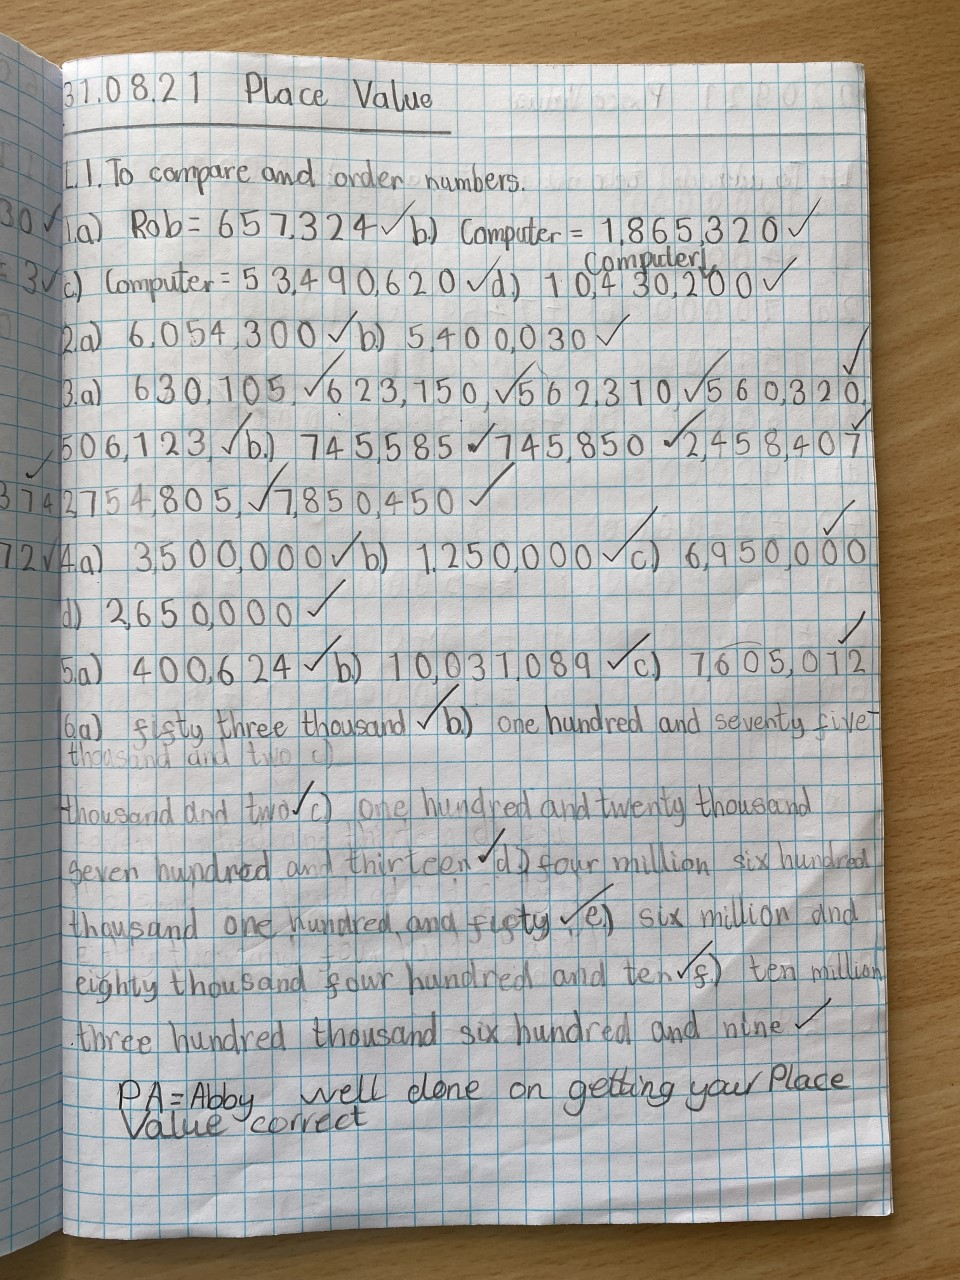 31.08.21 Place Value
L.I. To compare and order numbers.
30 ✓ 1.a) Rob = 657,324 ✓ b.) Computer = 1,865,320 ✓
Computer
= 3 ✓ c) Computer = 53,490,620 ✓ d) 10,430,200 ✓
2.a) 6,054,300 ✓ b) 5,400,030 ✓
3.a) 630,105, ✓ 623,150, ✓ 562,310 ✓ 560,320, ✓
506,123, ✓ b.) 745,585 ✓ 745,850 ✓ 2,458,407 ✓
374 ✓ 2,754,805, ✓ 7,850,450 ✓
72 ✓ 4.a) 3,500,000 ✓ b) 1,250,000 ✓ c) 6,950,000 ✓
d) 2,650,000 ✓
5.a) 400,624 ✓ b.) 10,031,089 ✓ c.) 7,605,012 ✓
6.a) fifty three thousand ✓ b.) one hundred and seventy five
thousand and two c)
thousand and two ✓ c) one hundred and twenty thousand
seven hundred and thirteen ✓ d.) four million six hundred
thousand one hundred and fifty ✓ e.) six million and
eighty thousand four hundred and ten ✓ f.) ten million
three hundred thousand six hundred and nine ✓
PA = Abby well done on getting your Place
Value correct